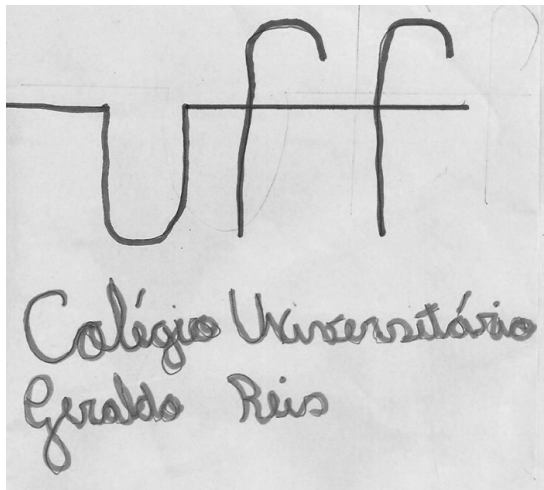 uff
Colégio Universitário
Geraldo Reis